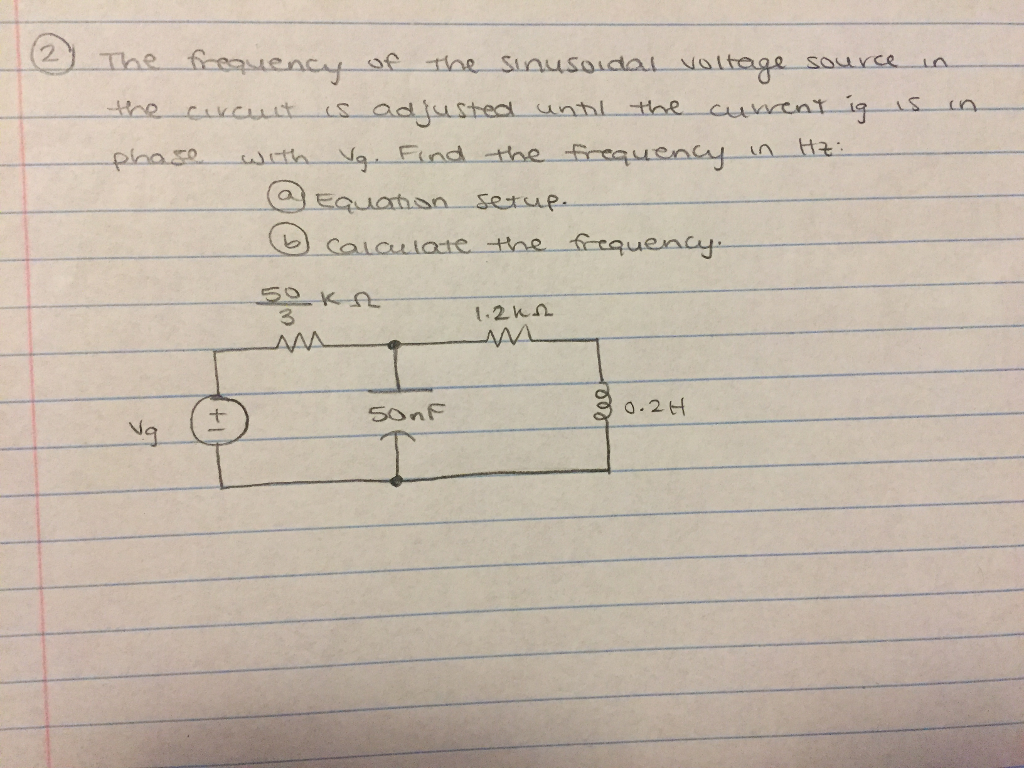 ② The frequency of the sinusoidal voltage source in
the circuit is adjusted until the current ig is in
phase with Vg. Find the frequency in Hz:
ⓐ Equation setup.
ⓑ Calculate the frequency.
50/3 KΩ
1.2kΩ
Vg
+
−
50nF
0.2H